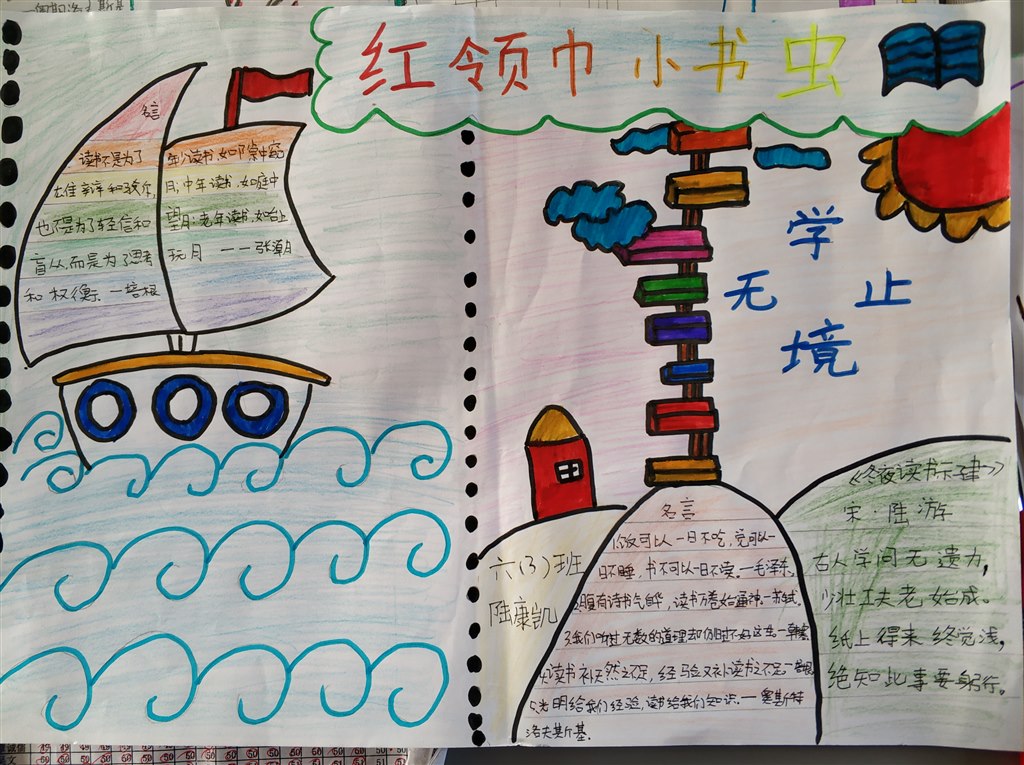 红领巾小书虫
名言
读书不是为了
雄辩和驳斥,
也不是为了轻信和
盲从,而是为了思考
和权衡.—培根
年少读书,如隙中窥
月;中年读书,如庭中
望月;老年读书,如台上
玩月 ——张潮
学
无 止
境
六(3)班
陆康凯
名言
饭可以一日不吃,觉可以一
日不睡,书不可以一日不读.—毛泽东
腹有诗书气自华,读书万卷始通神.—苏轼
读书补天然之不足,经验又补读书之不足.—培根
光明给我们经验,读书给我们知识.—奥斯特
洛夫斯基.
《冬夜读书示聿》
宋·陆游
古人学问无遗力,
少壮工夫老始成。
纸上得来终觉浅,
绝知此事要躬行。